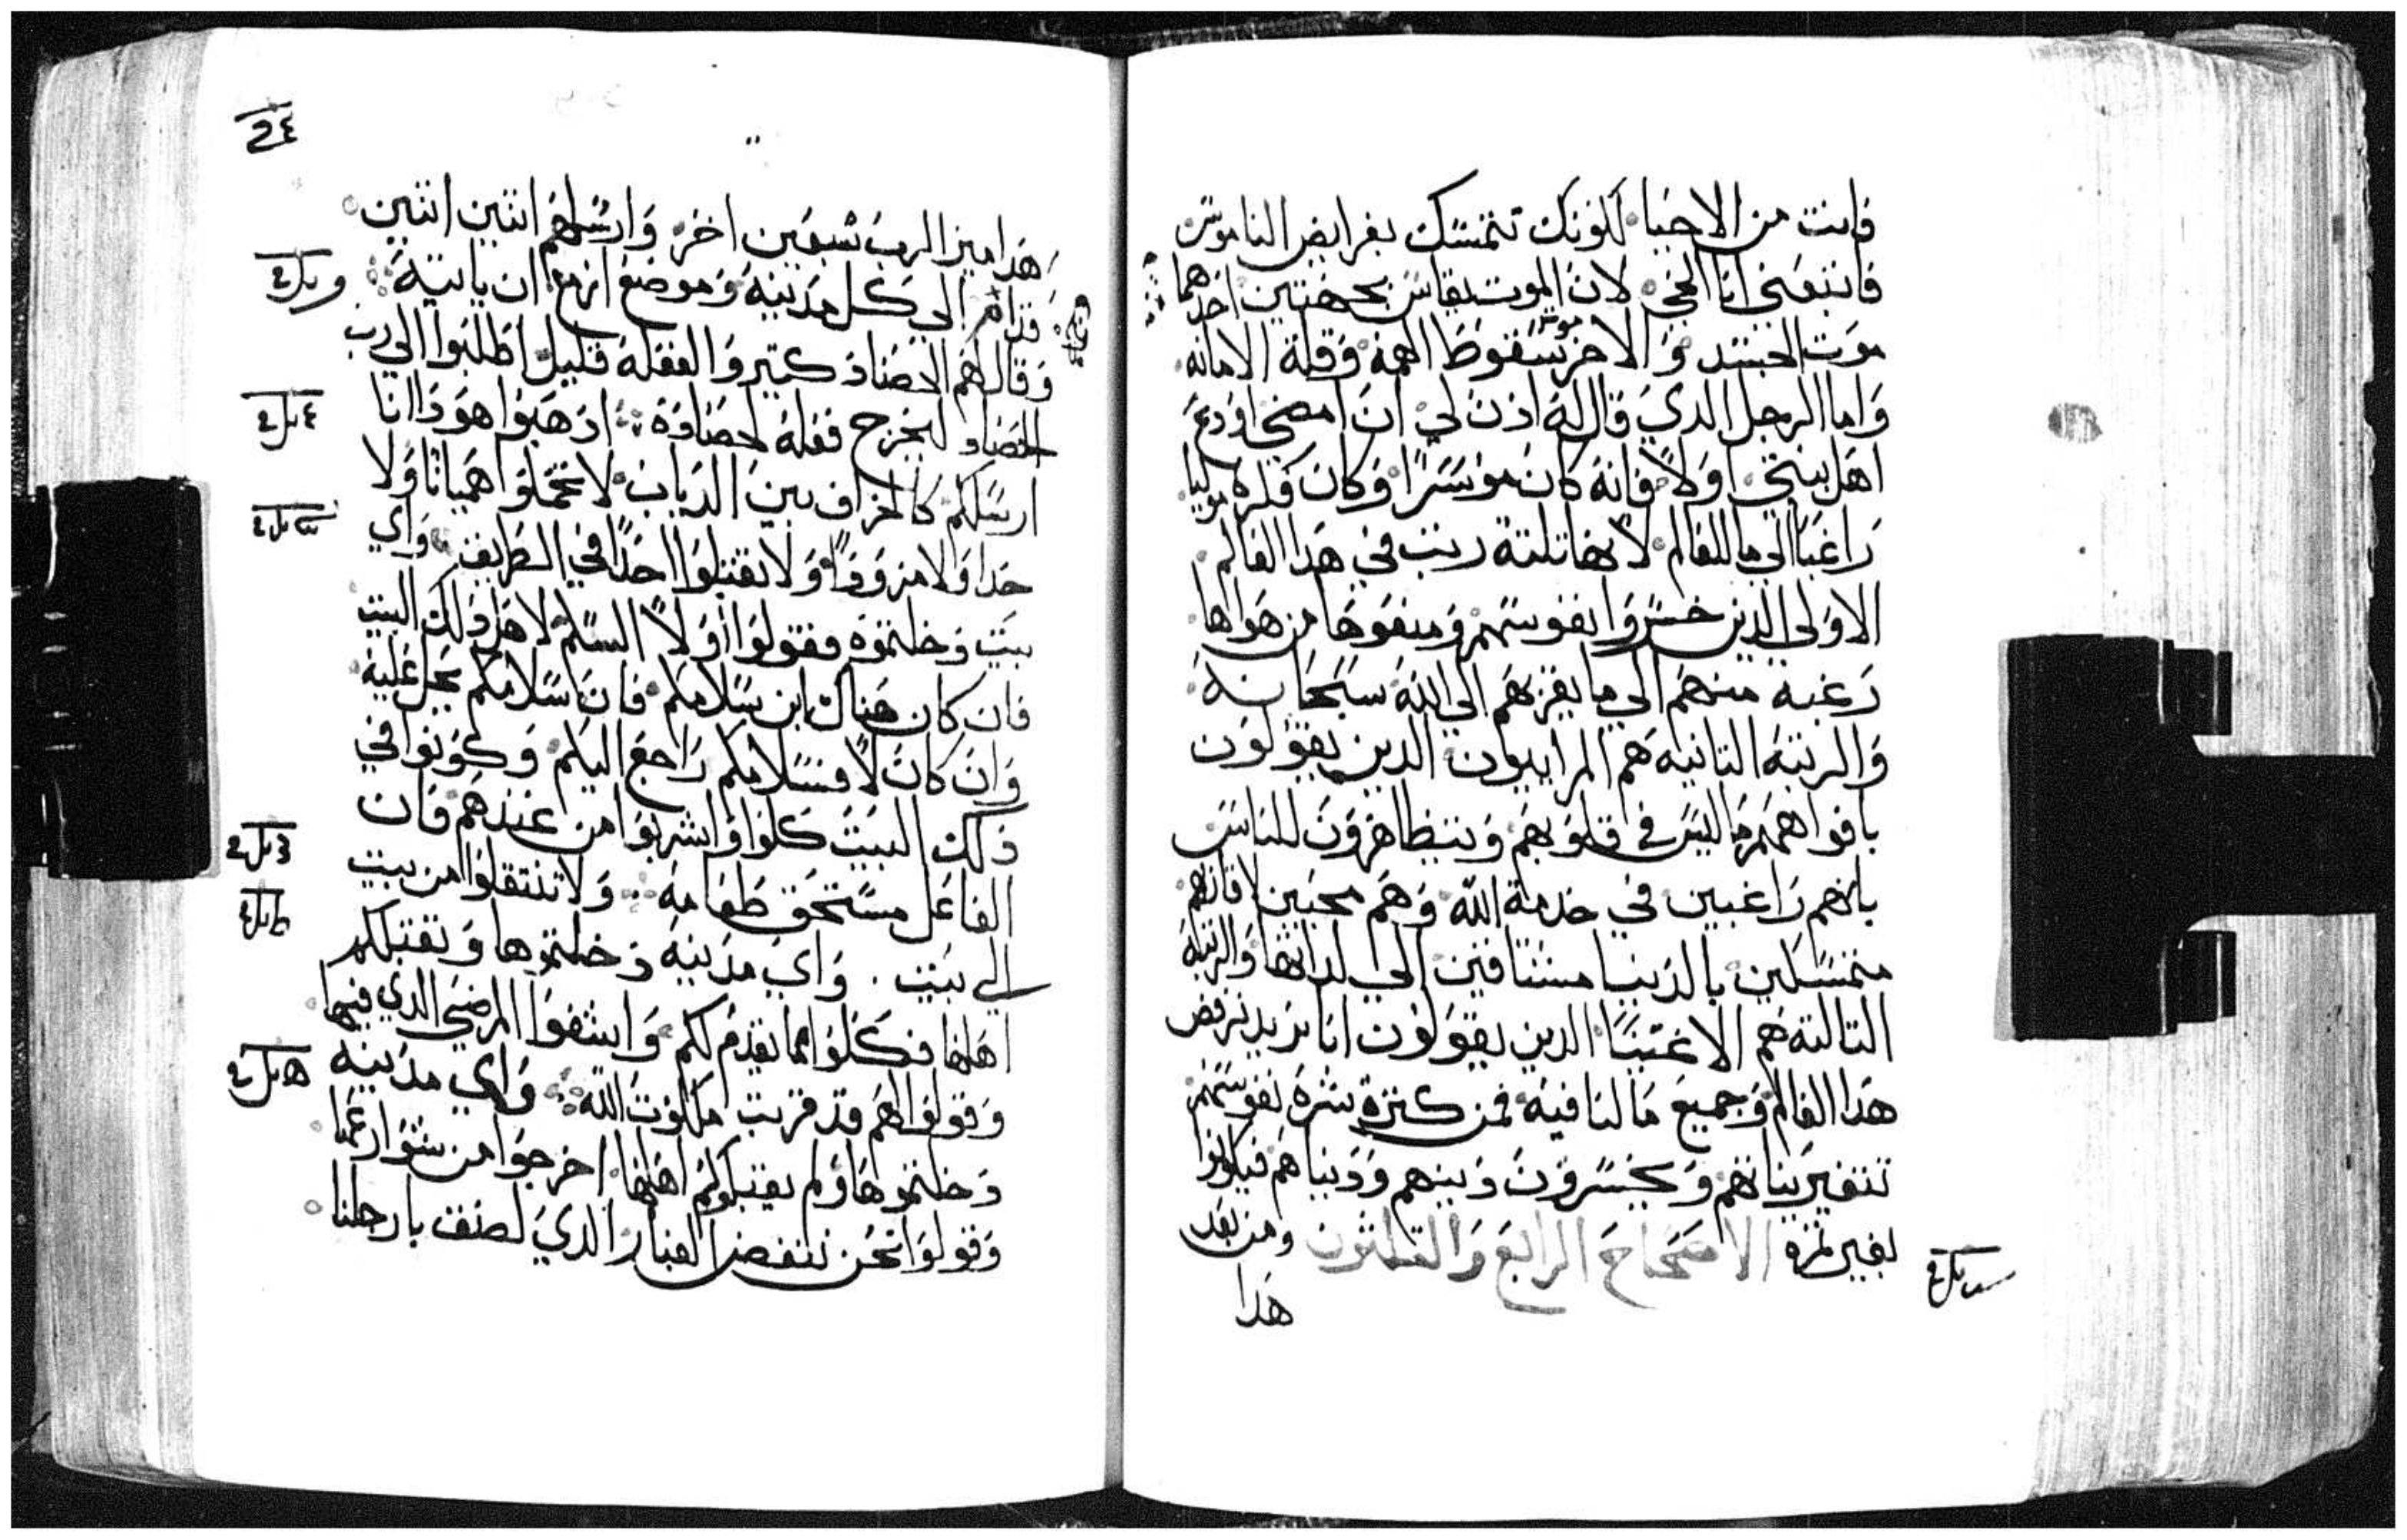 فانت من الاحيا لكونك تتمسك بفرايض الناموس
فاتبعني انا الحي لان الموت يقاس بجهتين احدهما
موت الجسد والاخر موت سقوط الهمة وقلة الامانه
واما الرجل الدي قال له ادن لي ان امضي اودع
اهل بيتي اولا فانه كان موسرا وكان فكره موليا
راغبا الي ما للعالم لانها تلتة رتب في هدا العالم
الاولي الدين خسروا نفوسهم ومنعوها من هواها
رغبة منهم الي ما يقربهم الي الله سبحانه
والرتبه التانيه هم المراييون الدين يقولون
بافواههم ما ليس في قلوبهم ويتظاهرون للناس
بانهم راغبين في خدمة الله وهم محبين لاقاربهم
متمسكين بالدنيا مشتاقين الي لداتها والرتبة
التالتة هم الاغنيا الدين يقولون انا نريد نرفض
هدا العالم وجميع ما لنا فيه فمن كترة شره نفوسهم
تتغير نياتهم ويخسرون دينهم ودنياهم فيكونوا
بغير تمره الاصحاح الرابع والتلتون ومن بعد
هدا
هدا ميز الرب سبعين اخر وارسلهم اتنين اتنين
قدامه الي كل مدينه وموضع ازمع ان ياتيه
وقال لهم الحصاد كتير والفعله قليل اطلبوا الي رب
الحصاد ليخرج فعلة لحصاده ادهبوا هودا انا
ارسلكم كالخراف بين الدياب لا تحملوا هميانا ولا
حدا ولا مزودا ولا تقبلوا احدا في الطريق واي
بيت دخلتموه فقولوا اولا السلم لاهل دلك البيت
فان كان هناك ابن سلامكم فان سلامكم يحل عليه
وان كان لا فسلامكم راجع اليكم وكونوا في
دلك البيت كلوا واشربوا من عندهم فان
الفاعل مستحق طعامه ولا تنتقلوا من بيت
الي بيت واي مدينه دخلتموها وتقبلكم
اهلها فكلوا مما يقدم لكم واشفوا المرضي الدي فيها
وقولوا لهم قد قربت ملكوت الله واي مدينه
دخلتموها ولم يقبلوكم اهلها اخرجوا من شوارعها
وقولوا نحن ننفض الغبار الدي لصق بارجلنا